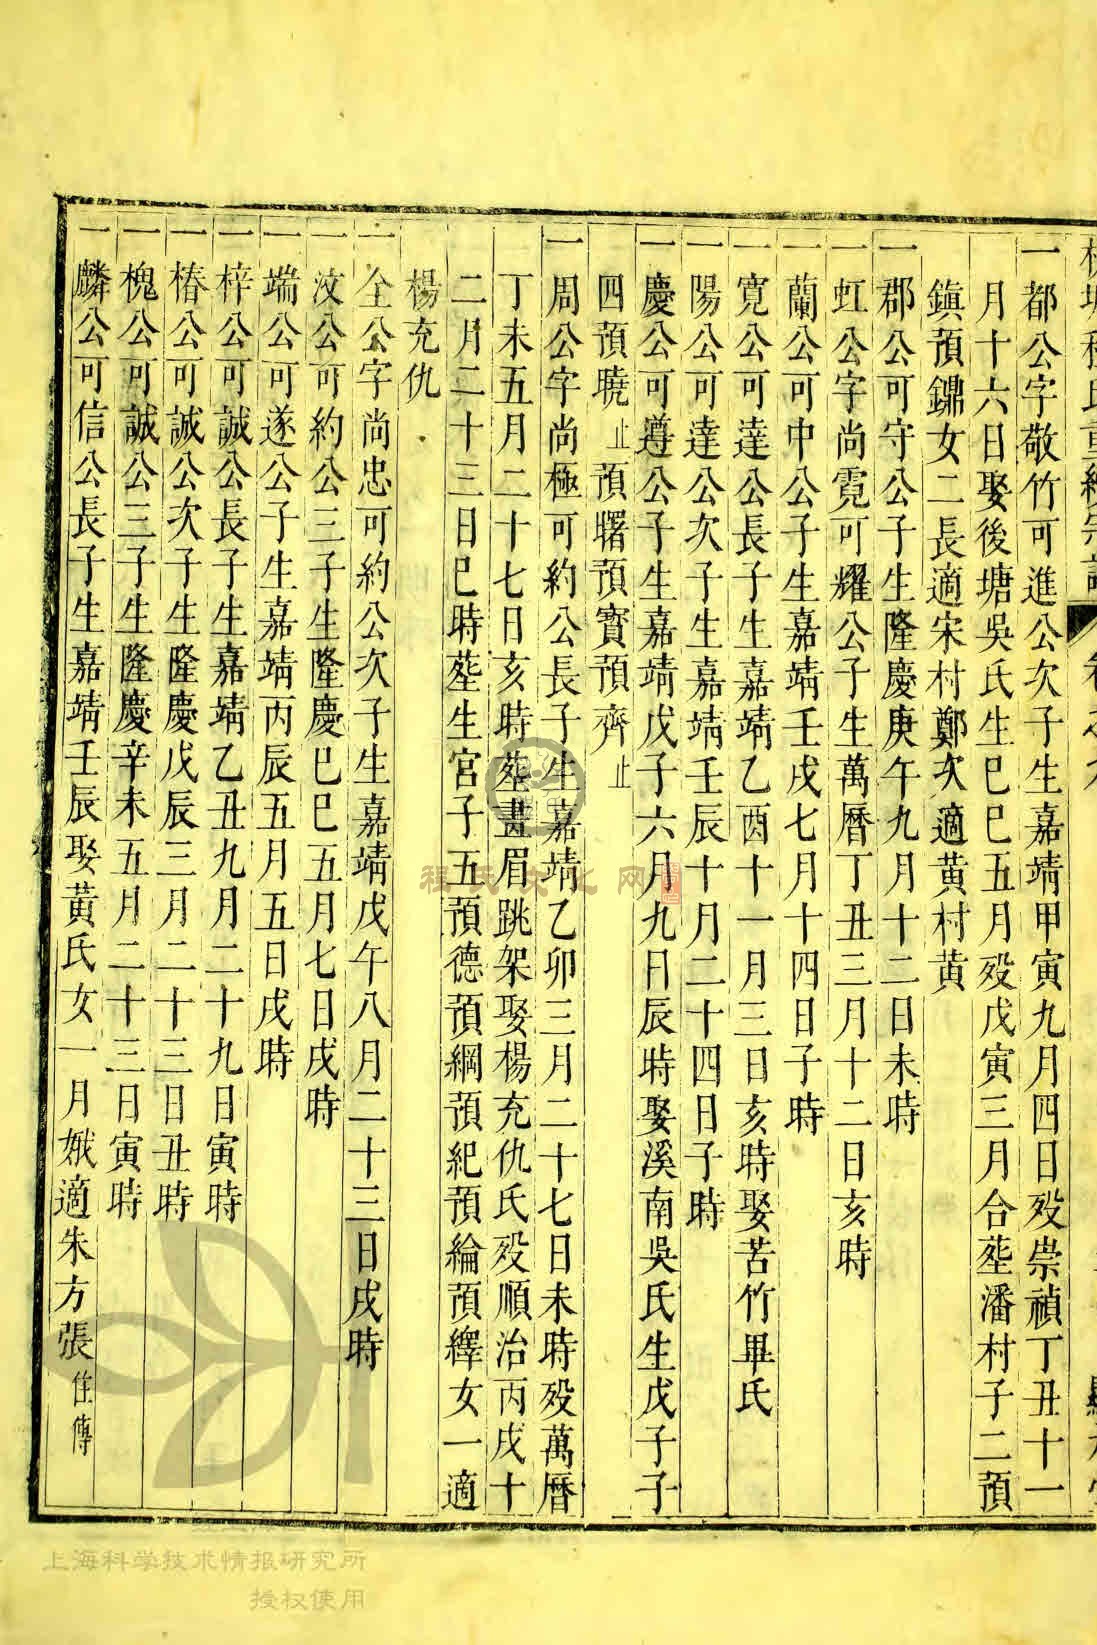 一都公字敬竹可進公次子生嘉靖甲寅九月四日歿崇禎丁丑十一
月十六日娶後塘吳氏生巳巳五月歿戊寅三月合塟潘村子二預
鎮預鏽女二長適宋村鄭次適黄村黄
一郡公可守公子生隆慶庚午九月十二日未時
一虹公字尚霓可耀公子生萬曆丁丑三月十二日亥時
一蘭公可中公子生嘉靖壬戌七月十四日子時
一寛公可達公長子生嘉靖乙酉十一月三日亥時娶苦竹畢氏
一陽公可達公次子生嘉靖壬辰十月二十四日子時
一慶公可遵公子生嘉靖戊子六月九日辰時娶溪南吳氏生戊子子
四預曉止預曙預實預齊止
一周公字尚極可約公長子生嘉靖乙卯三月二十七日未時歿萬曆
丁未五月二十七日亥時塟畫眉跳架娶楊充仇氏歿順治丙戌十
二月二十三日巳時塟生宫子五預德預綱預紀預綸預繹女一適
楊充仇
一全公字尚忠可約公次子生嘉靖戊午八月二十三日戌時
一汶公可約公三子生隆慶巳巳五月七日戌時
一端公可遂公子生嘉靖丙辰五月五日戌時
一梓公可誠公長子生嘉靖乙丑九月二十九日寅時
一椿公可誠公次子生隆慶戊辰三月二十三日丑時
一槐公可誠公三子生隆慶辛未五月二十三日寅時
一麟公可信公長子生嘉靖壬辰娶黄氏女一月娥適朱方張住傳
程氏文化网
上海科学技术情报研究所
授权使用